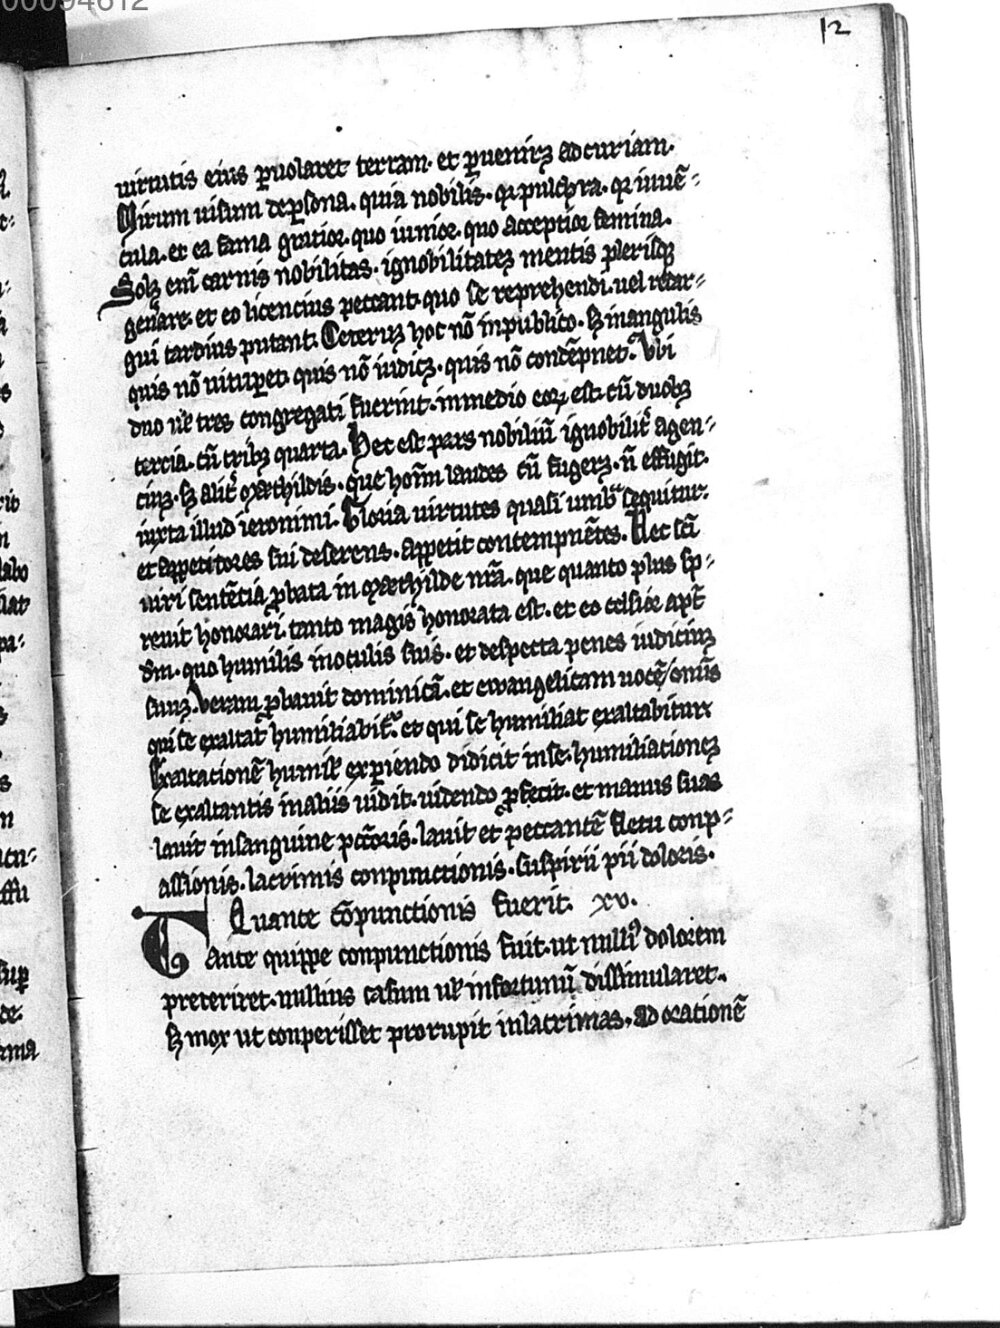 12
uirtutis eius ꝑuolaret terram. et ꝑueniꝫ ad curiam.
Mirum uisum de ꝑsona. quia nobilis. qꝛ pulchra. qꝛ iuuē-
cula. et ea fama gratior. quo iunior. quo acceptior femina.
Solꝫ enī carnis nobilitas. ignobilitateꝫ mentis plerisqꝫ
gen̄are. et eo licencius peccant. quo se reprehendi. uel redar-
gui tardius putant. Ceteruꝫ hoc nō in publico. sꝫ in angulis
quis nō uituꝑet. quis nō iudicꝫ. quis nō contēpnet. Vbi
duo ul' tres congregati fuerint. in medio eoꝝ est. cū duobꝫ
tercia. cū tribꝫ quarta. Hec est pars nobiliū ignobilit' agen-
ciuꝫ. sꝫ alit' mæchildis. que hoīm laudes cū fugerꝫ. n̄ effugit.
iuxta illud ieronimi. Gloria uirtutes quasi umbᵃ sequitur.
et appetitores sui deserens. appetit contempnētes. Nec scī
uiri sentētia ꝓbata in mæchilde nr̄a. que quanto plus sp-
reuit honorari. tanto magis honorata est. et eo celsior apt̄
dm̄. quo humilis in oculis suis. et despecta penes iudiciuꝫ
suuꝫ. Veram ꝓbauit dominicā. et ewangelicam uocē/ omīs
qui se exaltat humiliabit'. et qui se humiliat exaltabitur.
Exaltationē humil' exꝑiendo didicit in se. humiliationeꝫ
se exaltantis in aliis uidit. uidendo ꝓfecit. et manus suas
lauit in sanguine pc̄coris. lauit et peccantē fletu conp-
assionis. lacrimis conpunctionis. suspirii pii doloris.
Quante cōpunctionis fuerit. xv.
Tante quippe conpunctionis fuit. ut nulliꝰ dolorem
preteriret. nullius casum ul' infortuniū dissimularet.
sꝫ mox ut conperisset prorupit in lacrimas. ad orationē